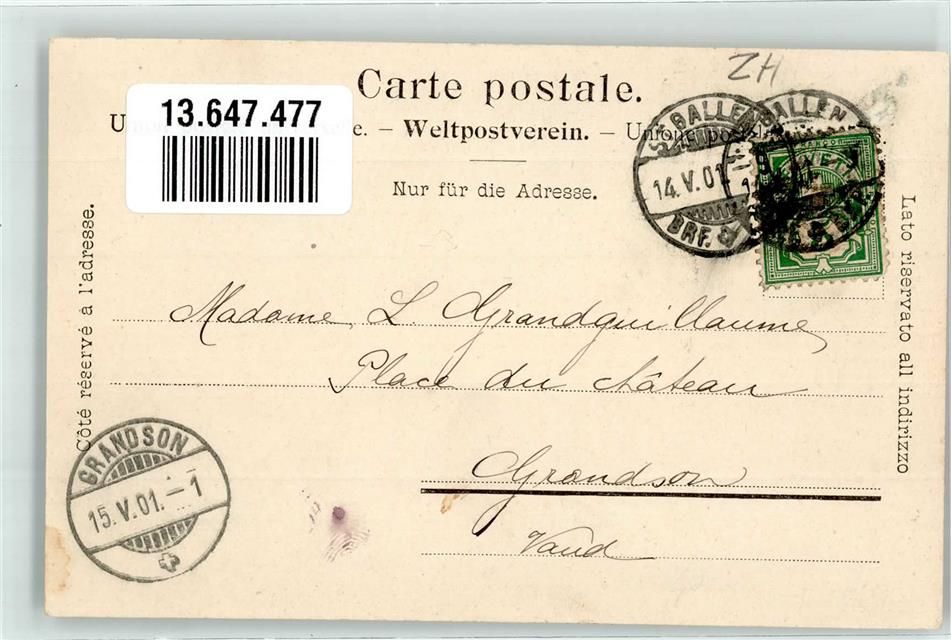 ZH
Carte postale.
13.647.477
U e. – Weltpostverein. – Unione postale
Nur für die Adresse.
Côté réservé à l'adresse.
Lato riservato all indirizzo
ST. GALLEN
14.V.01
BRF.
GALLEN
Madame L. Grandguillaume
Place du château
Grandson
Vaud
GRANDSON
15.V.01.–1